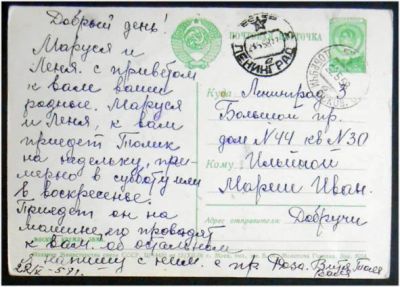 Добрый день!
Маруся и
Леня. с приветом
к вам ваши
родные. Маруся
и Леня, к вам
приедет Толик
на недельку, при-
мерно в субботу или
в воскресенье.
Приедет он на
машине его проводят
к вам. об остальном
напишу с ним. с пр
ПОЧТОВАЯ КАРТОЧКА
ЛЕНИНГРАД
Куда Ленинград 3
Большой пр.
дом №44 кв №30
Кому Ильиной
Марии Иван.
Адрес отправителя:
Добручи